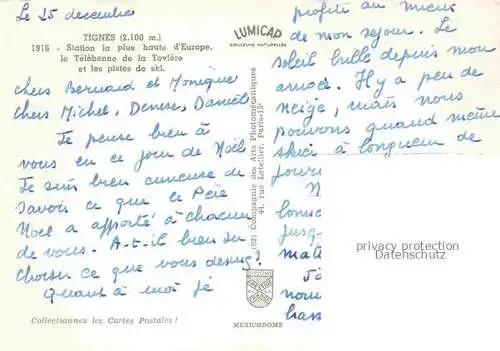 Le 25 decembre
TIGNES (2.100 m.)
1916 - Station la plus haute d'Europe,
le Télébenne de la Tovière
et les pistes de ski.
LUMICAP
COULEURS NATURELLES
chers Bernard et Monique
chers Michel, Denise, Danièle
Je pense bien à
vous en ce jour de Noël
Je suis bien curieuse de
savoir ce que ce Père
Noel a apporté à chacun
de vous. A-t-il bien su
choisir ce que vous desirez?
Quant à moi je
Collectionnez les Cartes Postales !
(62) Compagnie des Arts Photomécaniques
44, rue Letellier, Paris-15e
MEXICHROME
profite au mieux
de mon sejour. Le
soleil brille depuis mon
arrivée. Il y a peu de
neige, mais nous
pouvons quand même
skier à longueur de
jour
N
jusq
mati
nou
bass
privacy protection
Datenschutz